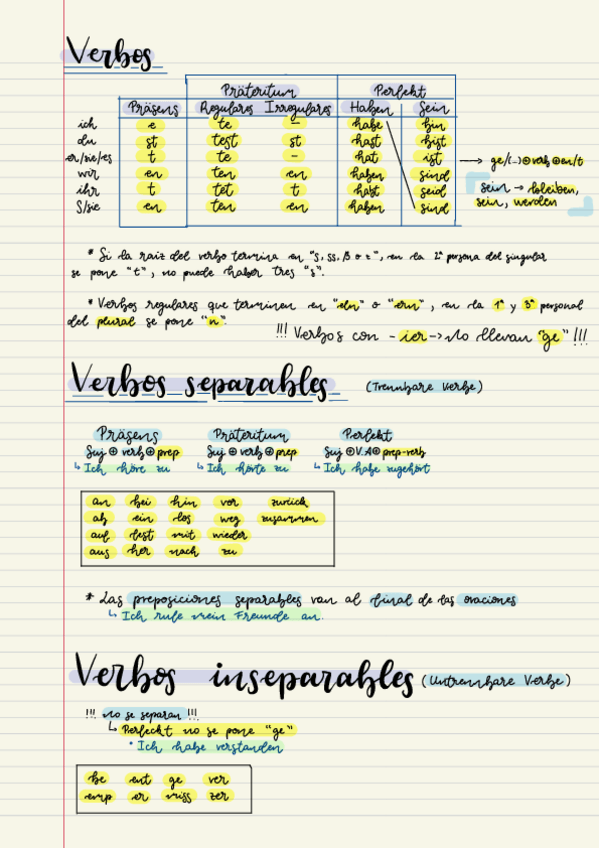 Verbos
Präteritum Perfekt
Präsens Regulares Irregulares Haben Sein
ich e te - habe bin
du st test st hast bist
er/sie/es t te - hat ist → ge/(...)⊕verb⊕en/t
wir en ten en haben sind
ihr t tet t habt seid
S/sie en ten en haben sind
sein → bleiben,
sein, werden
* Si la raiz del verbo termina en "s, ss, ß o z", en la 2ª persona del singular
se pone "t", no puede haber tres "s".
* Verbos regulares que terminen en "eln" o "ern", en la 1ª y 3ª personal
del plural se pone "n".
!!! Verbos con -ier → No llevan "ge" !!!
Verbos separables (Trennbare Verbe)
Präsens Präteritum Perfekt
Suj ⊕ verb ⊕ prep Suj ⊕ verb ⊕ prep Suj ⊕ V.A ⊕ prep-verb
↳ Ich höre zu ↳ Ich hörte zu ↳ Ich habe zugehört
an bei hin vor zurück
ab ein los weg zusammen
auf fest mit wieder
aus her nach zu
* Las preposiciones separables van al final de las oraciones
↳ Ich rufe mein Freunde an.
Verbos inseparables (Untrennbare Verbe)
!!! No se separan !!!
↳ Perfeckt no se pone "ge"
• Ich habe verstanden
be ent ge ver
emp er miss zer